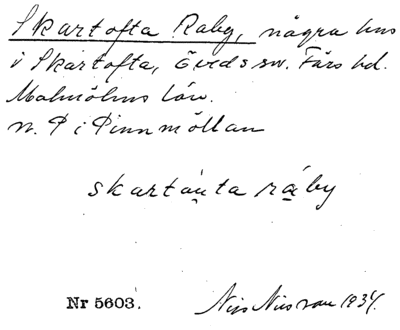 Skartofta Raby, några hus
i Skartofta, Öveds sn. Färs hd.
Malmöhus län.
n. P i Pinnmöllan
skartau̯ta rḁby
Nr 5603.
Nils Nilsson 1934.